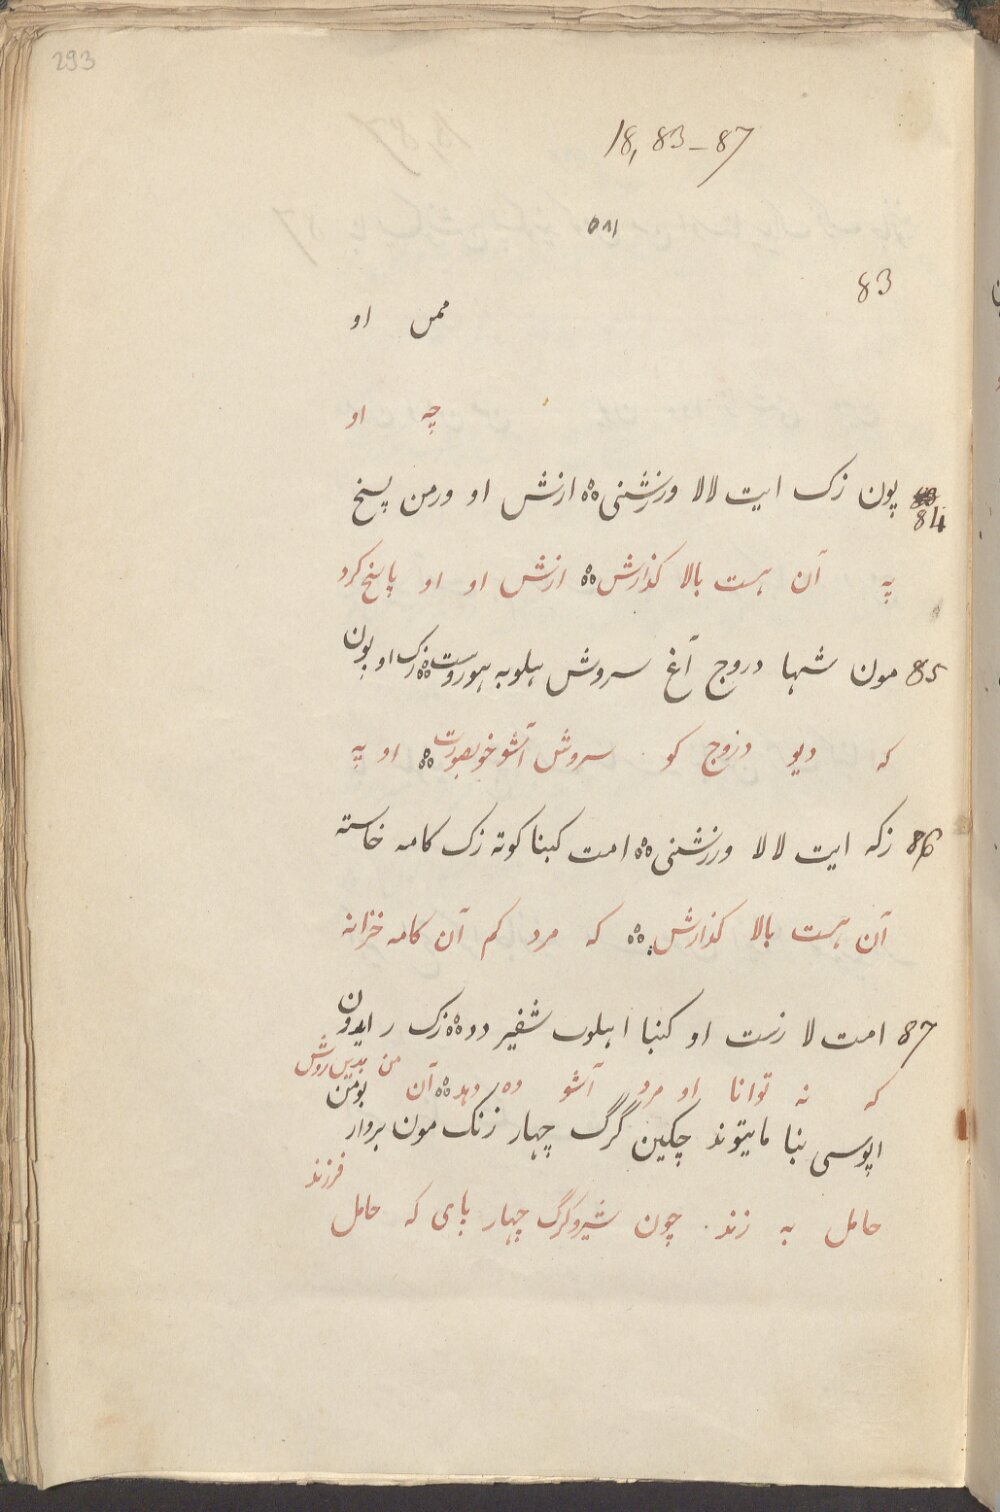 293
18, 83-87
٥٨١
83
ممں او
چه او
84 پون زک ایت لالا ورزشنی ازش او ورمن پسخ
په آن هست بالا کذارش ازش او او پاسخ کرد
85 مون شهها دروج آغ سروش هلوبه هوروست زک او پون
که دیو دروج کو سروش آشو خوبصورت او په
86 زکه ایت لالا ورزشنی امت کبنا کوته زک کامه خاسته
آن هست بالا کذارش که مرد کم آن کامه خزانه
87 امت لا زست او کنبا اهلوب شفیر دده زک ر ایدون
که نه توانا او مرد آشو ده دهد آن من بدین روش
اپوسی بنا مایتوند چکین گرگ چهار زنک مون بروار بومن
حامل به زند چون شیر و کرگ چهار پای که حامل فرزند